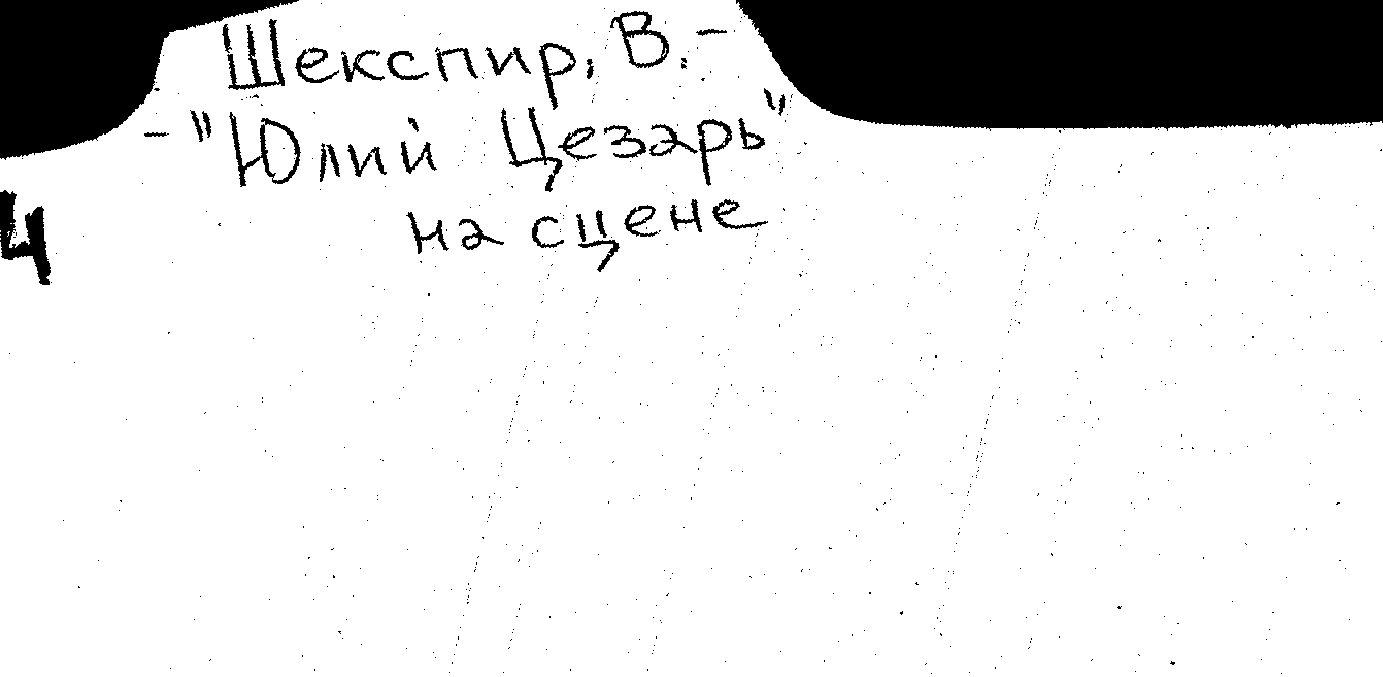 Шекспир, В. -
- "Юлий Цезарь"
на сцене